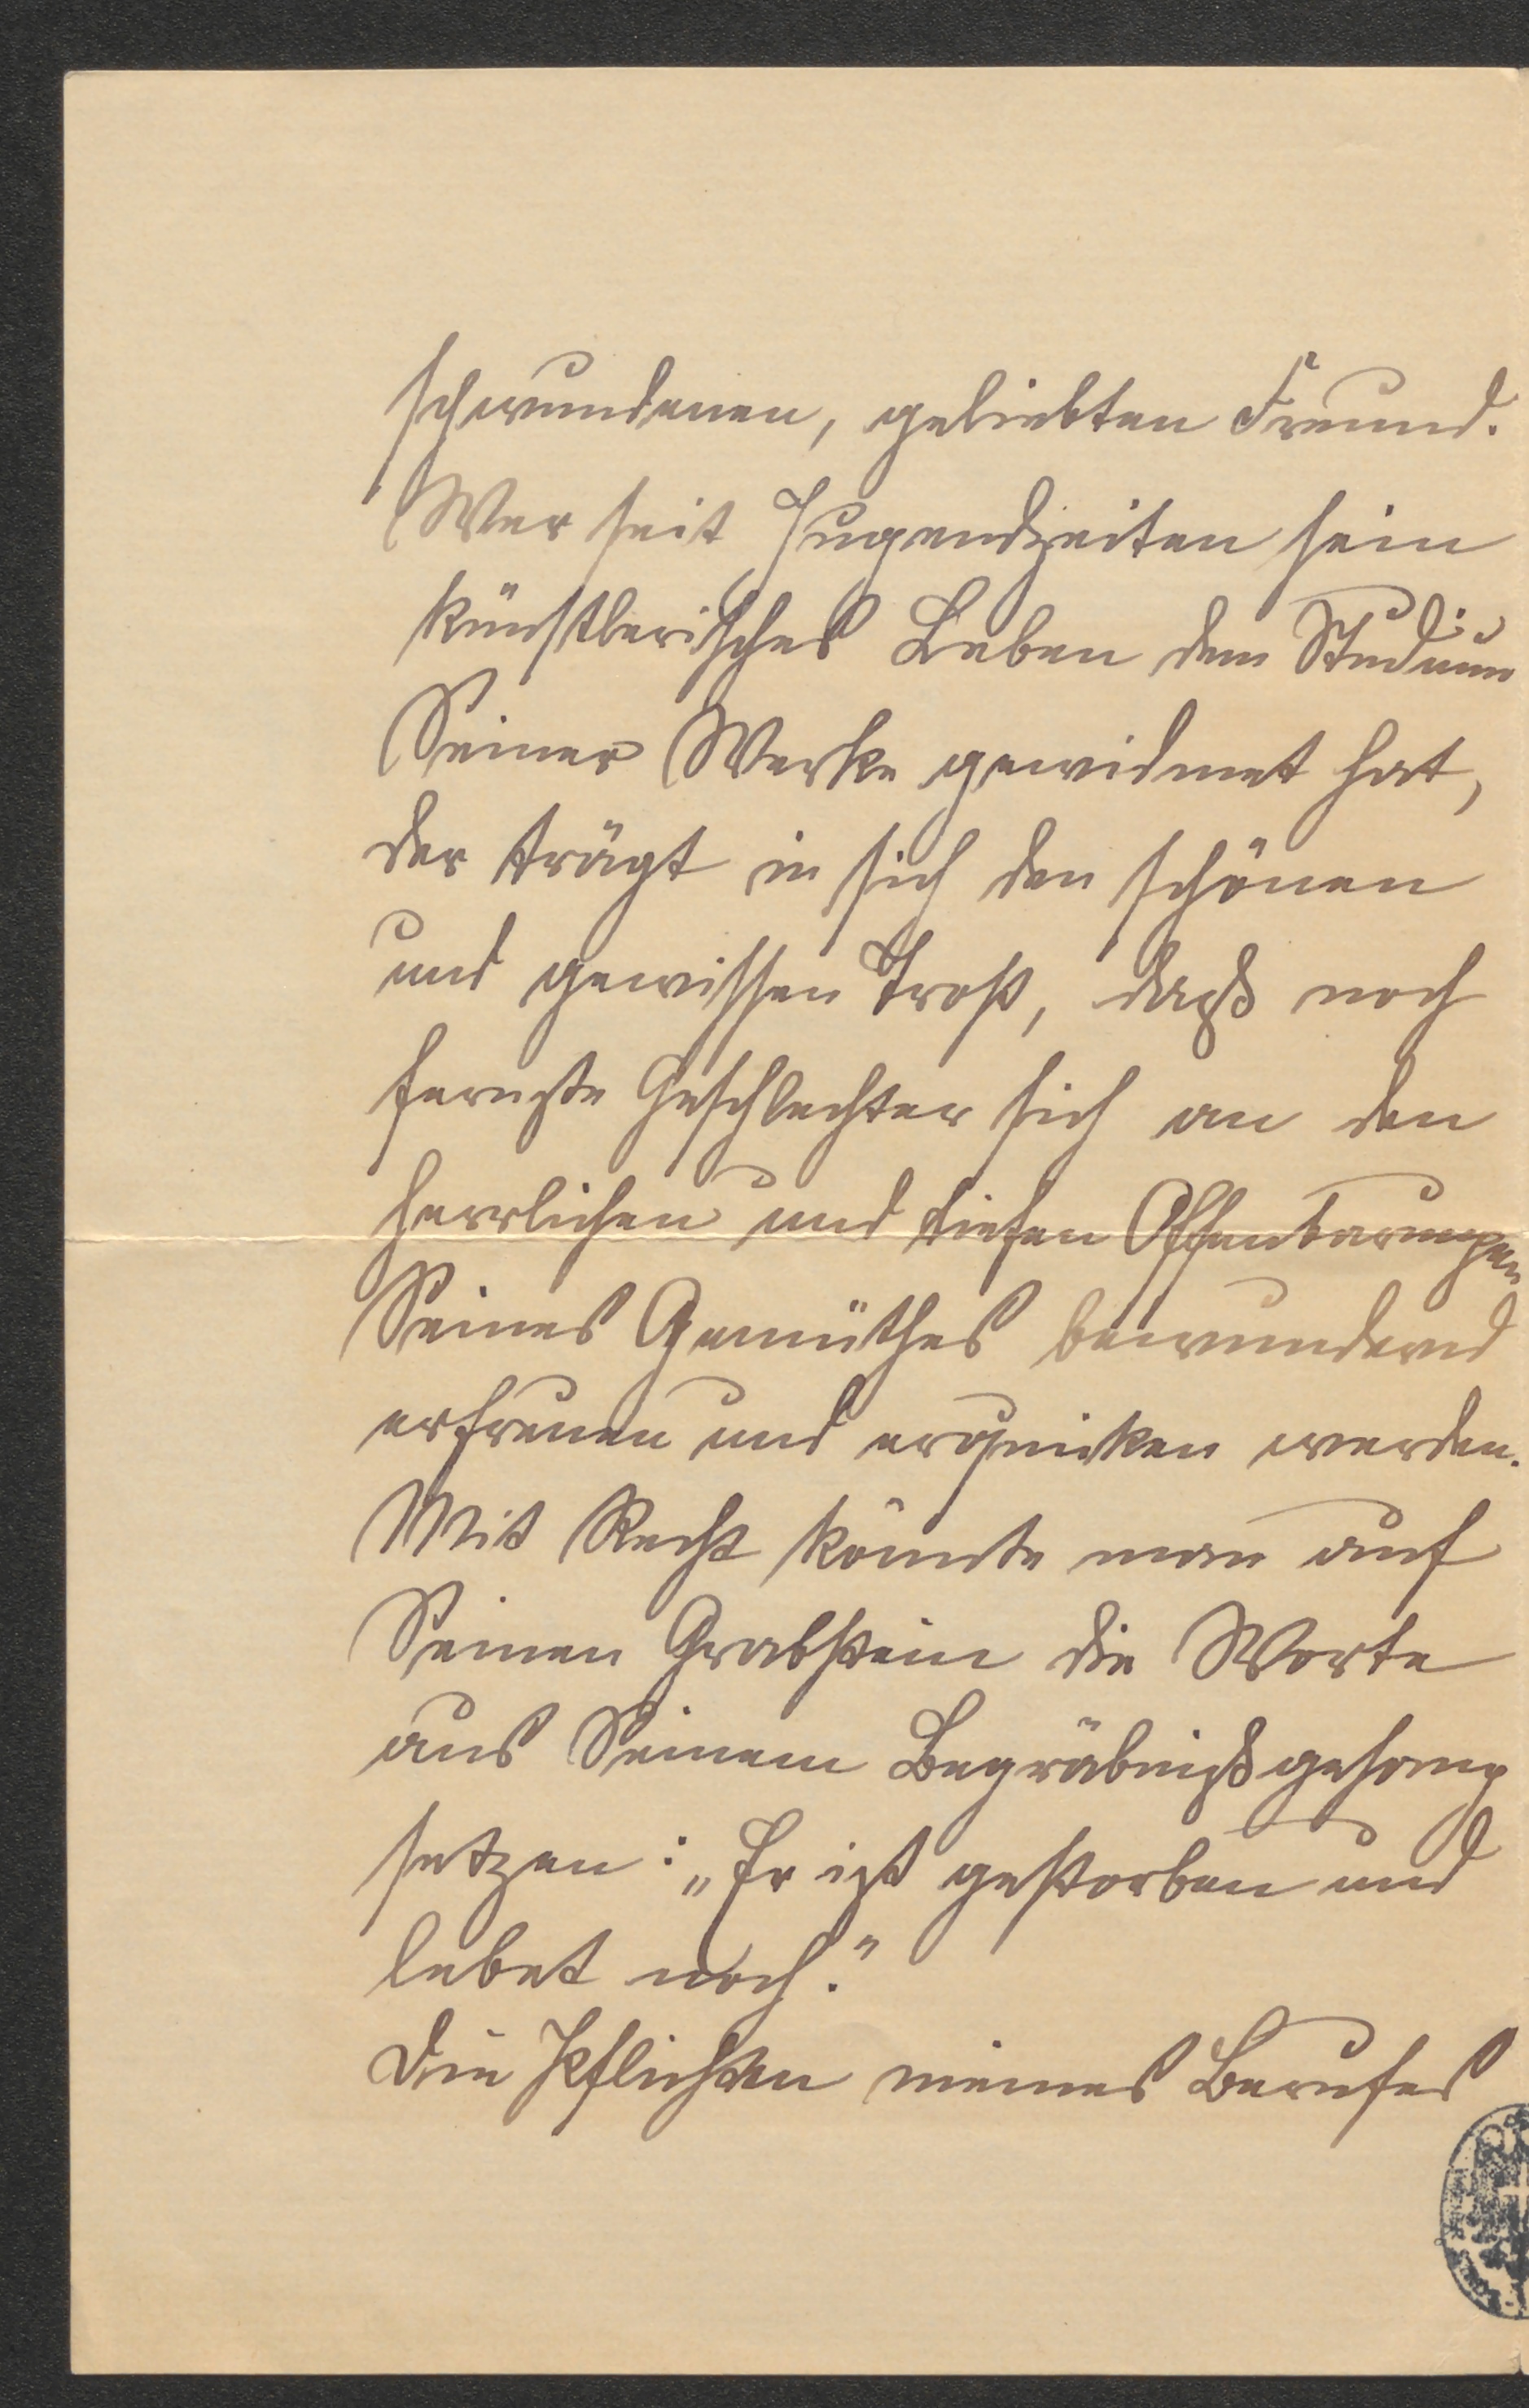 schwundenen, geliebten Freund.
Wer seit Jugendzeiten sein
künstlerisches Leben dem Studium
Seiner Werke gewidmet hat,
der trägt in sich den schönen
und gewissen Trost, daß noch
fernste Geschlechter sich an den
herrlichen und tiefen Offenbarungen
Seines Gemüthes bewundernd
erfreuen und erquicken werden.
Mit Recht könnte man auf
Seinen Grabstein die Worte
aus Seinem Begräbnißgesang
setzen: „Er ist gestorben und
lebet noch."
Die Pflichten meines Berufes